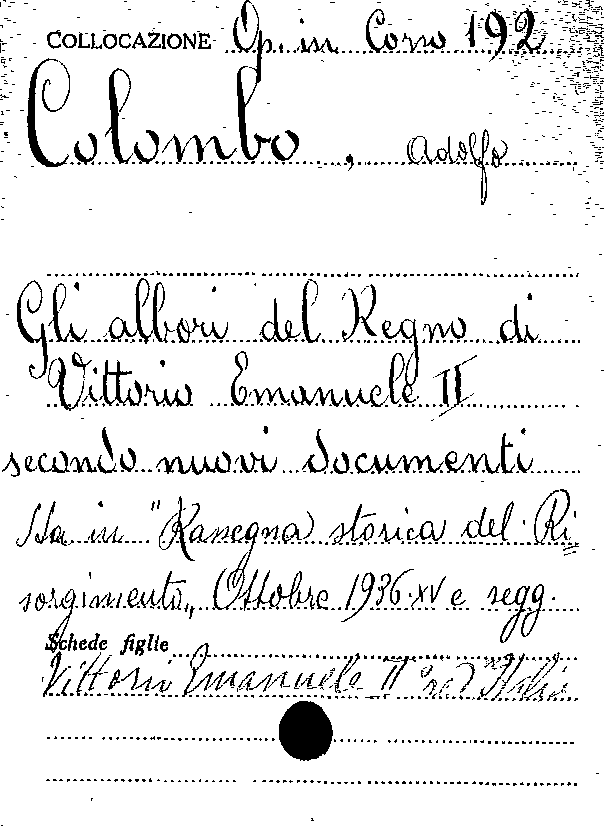 COLLOCAZIONE Op. in Corso 192
Colombo, Adolfo
Gli albori del Regno di
Vittorio Emanuele II
secondo nuovi documenti
Sta in "Rassegna storica del Ri=
sorgimento„ Ottobre 1936·XV e segg.
Schede figlie
Vittorio Emanuele II re d'Italia